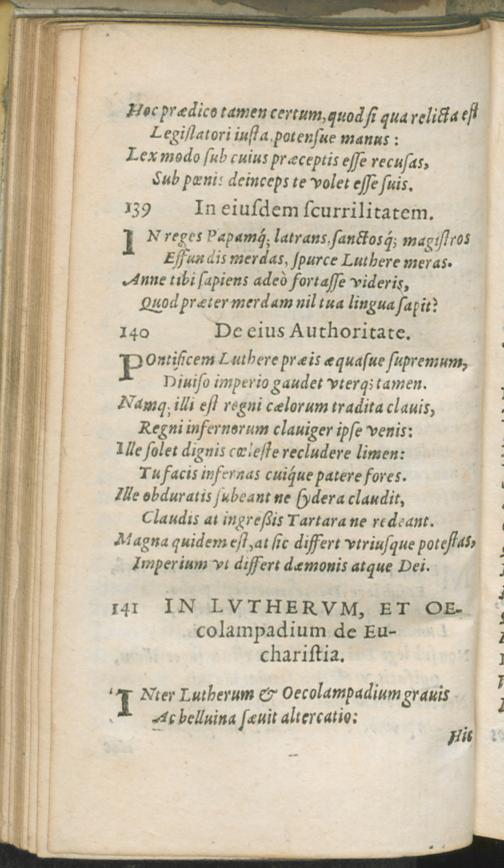 Hoc prædico tamen certum, quod si qua relicta est
Legislatori iusta, potensue manus:
Lex modo sub cuius præceptis esse recusas,
Sub pœnis deinceps te volet esse suis.
139 In eiusdem scurrilitatem.
IN reges Papamq́; latrans, sanctosq́; magistros
Effundis merdas, spurce Luthere meras.
Anne tibi sapiens adeò fortasse videris,
Quod præter merdam nil tua lingua sapit?
140 De eius Authoritate.
POntificem Luthere præis æquasue supremum,
Diuiso imperio gaudet vterq; tamen.
Namq; illi est regni cælorum tradita clauis,
Regni infernorum clauiger ipse venis:
Ille solet dignis cœleste recludere limen:
Tu facis infernas cuiq́ue patere fores.
Ille obduratis subeant ne sydera claudit,
Claudis at ingreßis Tartara ne redeant.
Magna quidem est, at sic differt vtriusque potestas,
Imperium vt differt dæmonis atque Dei.
141 IN LVTHERVM, ET OE-
colampadium de Eu-
charistia.
INter Lutherum & Oecolampadium grauis
Ac belluina sæuit altercatio:
Hic